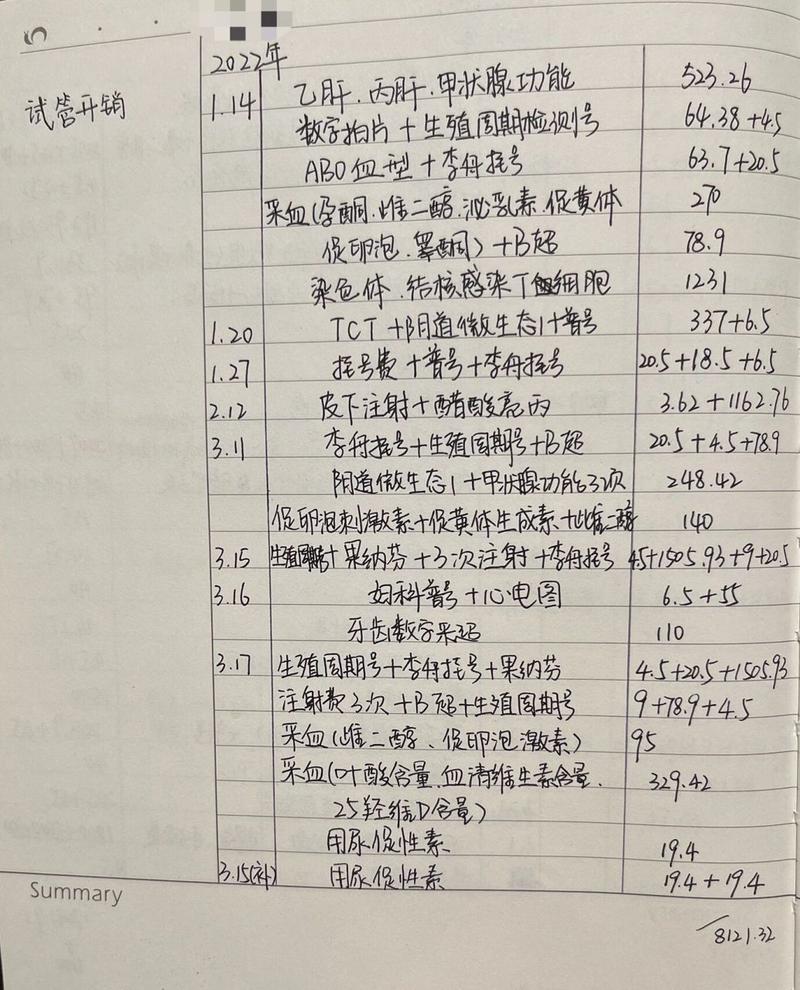 2022年
试管开销
1.14 乙肝.丙肝.甲状腺功能 523.26
数字拍片+生殖周期检测号 64.38+4.5
ABO血型+李舟挂号 63.7+20.5
采血(孕酮.雌二醇.泌乳素.促黄体 270
促卵泡.睾酮)+B超 78.9
染色体.结核感染T细胞 1231
1.20 TCT+阴道微生态1+普号 337+6.5
1.27 挂号费+普号+李舟挂号 20.5+18.5+6.5
2.12 皮下注射+醋酸亮丙 3.62+1162.76
3.11 李舟挂号+生殖周期号+B超 20.5+4.5+78.9
阴道微生态1+甲状腺功能3次 248.42
促卵泡刺激素+促黄体生成素+雌二醇 140
3.15 生殖周期+果纳芬+3次注射+李舟挂号 4.5+1505.93+9+20.5
3.16 妇科普号+心电图 6.5+55
牙齿数字采 110
3.17 生殖周期号+李舟挂号+果纳芬 4.5+20.5+1505.93
注射费3次+B超+生殖周期号 9+78.9+4.5
采血(雌二醇、促卵泡激素) 95
采血(叶酸含量.血清维生素含量. 329.42
25羟维D含量)
用尿促性素 19.4
3.15(补) 用尿促性素 19.4+19.4
Summary
8121.32